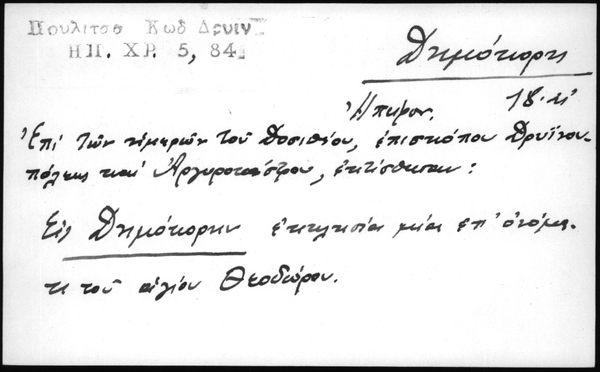 Πουλιτσα Κωδ Δρυιν
ΗΠ. ΧΡ. 5, 84
Δημόκορη
Ἠπείρου. 18. αἰ
Ἐπί τῶν ἡμερῶν τοῦ Δοσιθέου, ἐπισκόπου Δρυϊνου-
πόλεως καί Ἀργυροκάστρου, ἐκτίσθησαν:
Εἰς Δημόκορην ἐκκλησία μία ἐπ' ὀνόμα-
τι τοῦ ἁγίου Θεοδώρου.